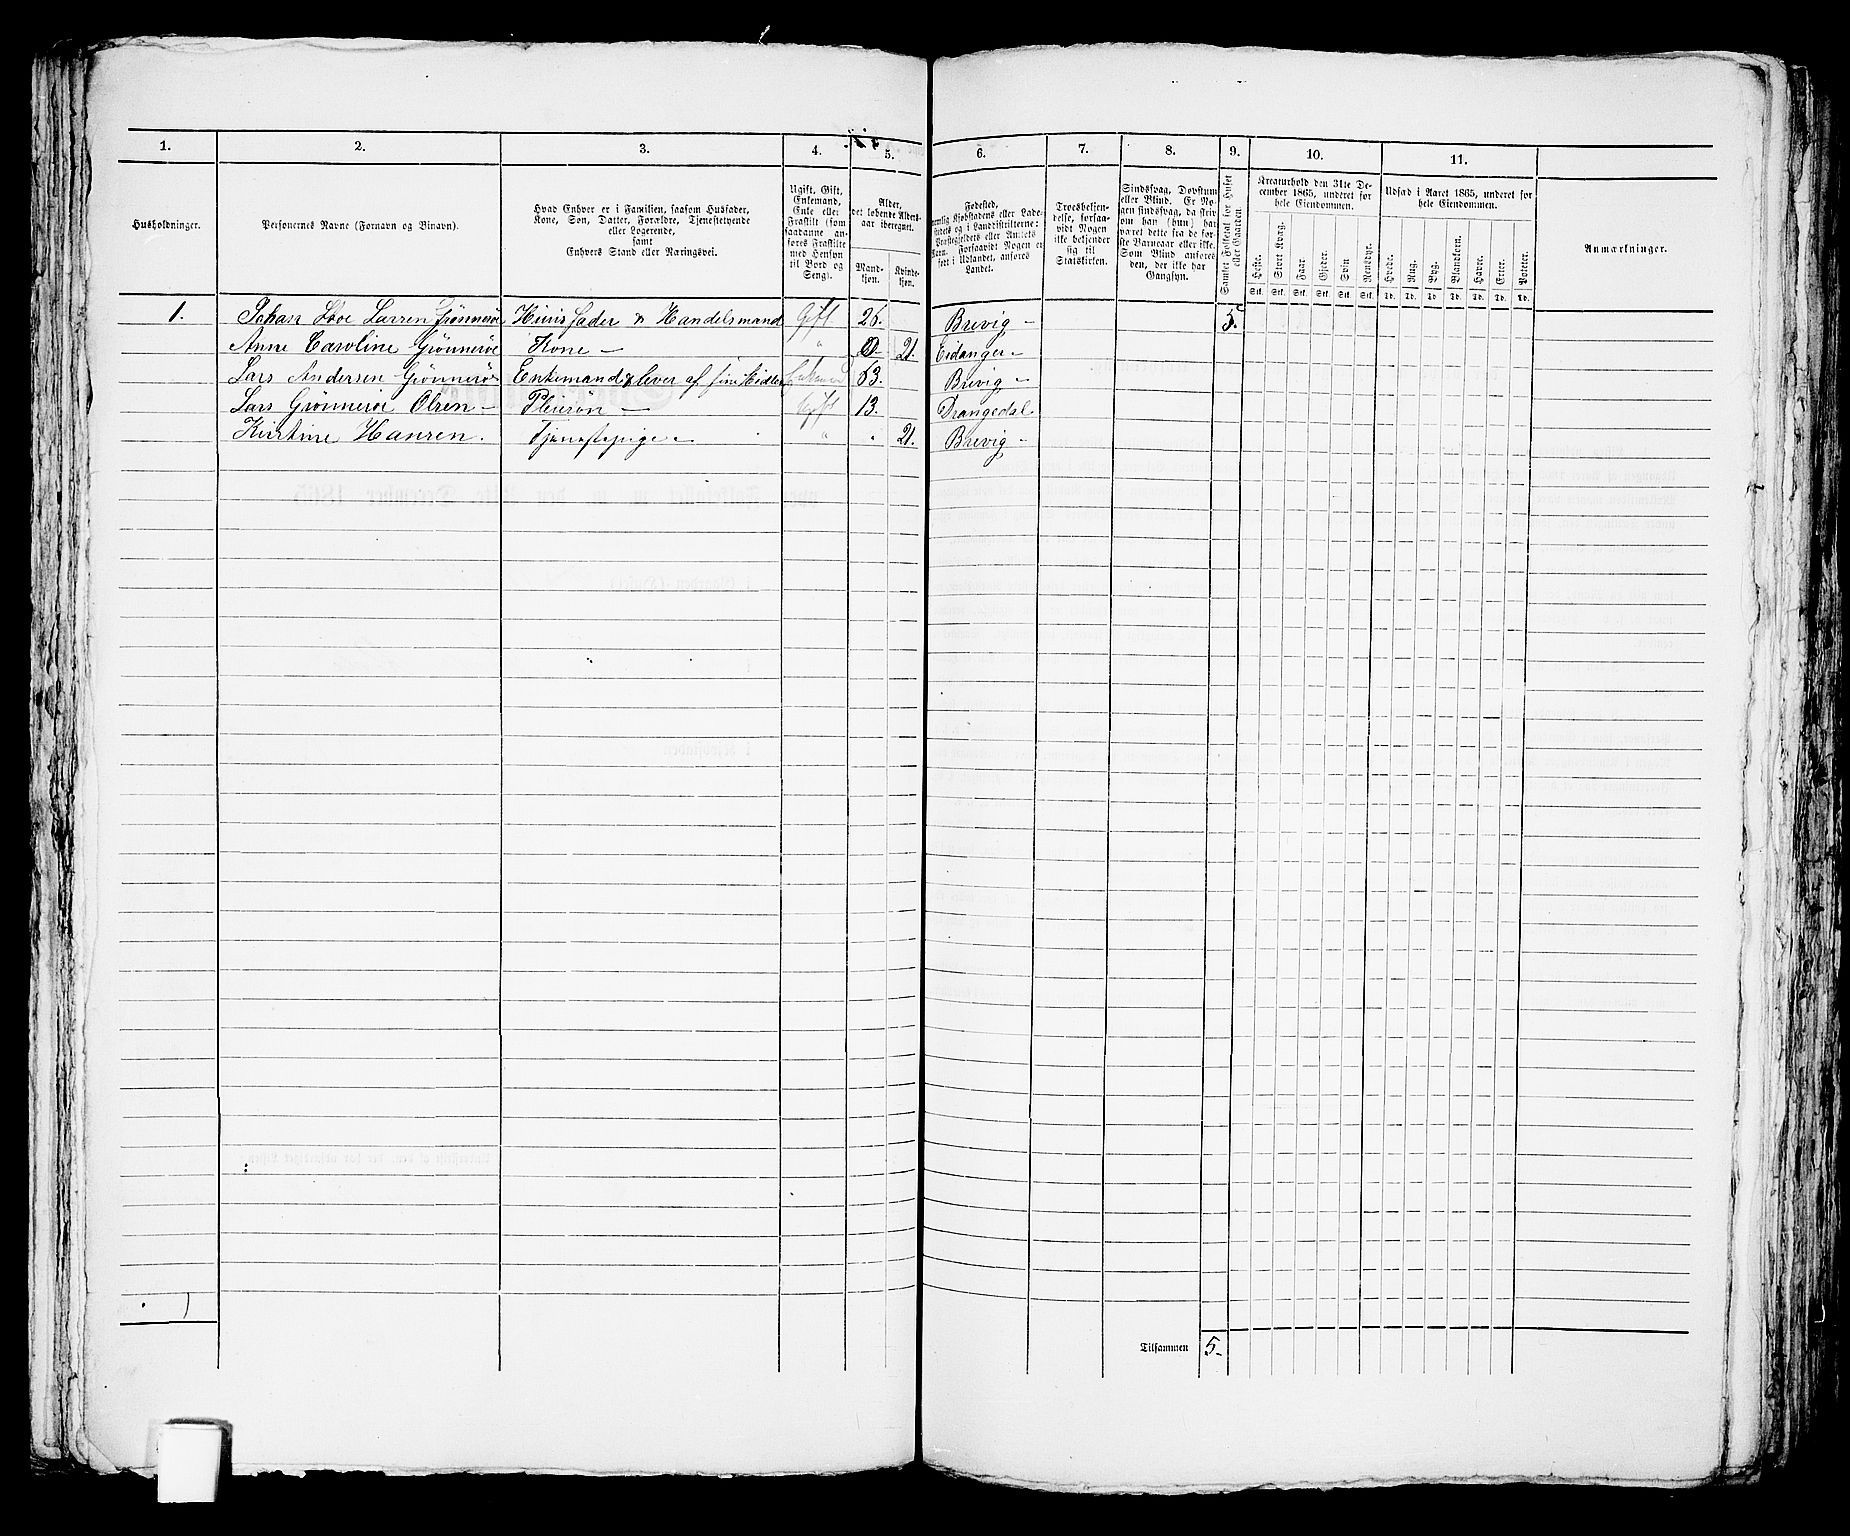 1. 2. 3. 4. 5. 6. 7. 8. 9. 10. 11.
Husholdninger.
Personernes Navne (Fornavn og Binavn).
Hvad Enhver er i Familien, saasom Husfader,
Kone, Søn, Datter, Forældre, Tjenestetyende
eller Logerende,
samt
Enhvers Stand eller Næringsvei.
Ugift, Gift,
Enkemand,
Enke eller
Fraskilt (som
saadanne an-
føres Fraskilte
med Hensyn
til Bord og
Seng).
Alder,
det løbende Alders-
aar iberegnet.
Mand-
kjøn.
Kvinde-
kjøn.
Fødested,
nemlig Kjøbstadens eller Lade-
stedets og i Landdistrikterne:
Præstegjeldets eller Amtets
Navn. Forsaavidt Nogen er
født i Udlandet, anføres
Landet.
Troesbekjen-
delse, forsaa-
vidt Nogen
ikke bekjender
sig til
Statskirken.
Sindssvag, Døvstum
eller Blind. Er No-
gen sindssvag, da skriv
om han (hun) har
været dette fra de før-
ste Barneaar eller ikke.
Som Blind anføres
den, der ikke har
Gangsyn.
Samlet Folketal for Huset
eller Gaarden.
Kreaturhold den 31te De-
cember 1865, underet for
hele Eiendommen.
Heste. Stort Kvæg. Faar. Gjeder. Svin. Rensdyr.
Stk. Stk. Stk. Stk. Stk. Stk.
Udsæd i Aaret 1865, underet for
hele Eiendommen.
Hvede. Rug. Byg. Blandkorn. Havre. Erter. Poteter.
Td. Td. Td. Td. Td. Td. Td.
Anmærkninger.
1. Johan Larsen Grønnerøe Huusfader & Handelsmand Gift 26. Brevig - 5.
Anne Caroline Grønnerøe Kone - " 21. Eidanger -
Lars Andersen Grønnerøe Enkemand & lever af sine Midler 63. Brevig -
Lars Grønnerøe Olsen - Pleiesøn - Ugift 13. Drangedal
Kirstine Hansen. Tjenestepige - " " 21. Brevig -
Tilsammen 5.